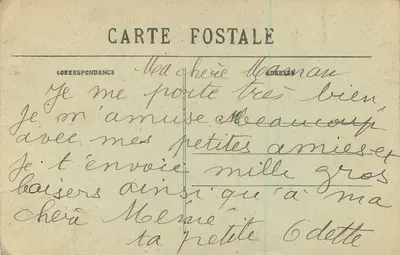 CARTE POSTALE
CORRESPONDANCE ADRESSE
Ma chère Maman
Je me porte très bien,
Je m'amuse Beaucoup
avec mes petites amies et
Je t'envoie mille gros
baisers ainsi qu'à ma
chèrè Mémé
ta petite Odette